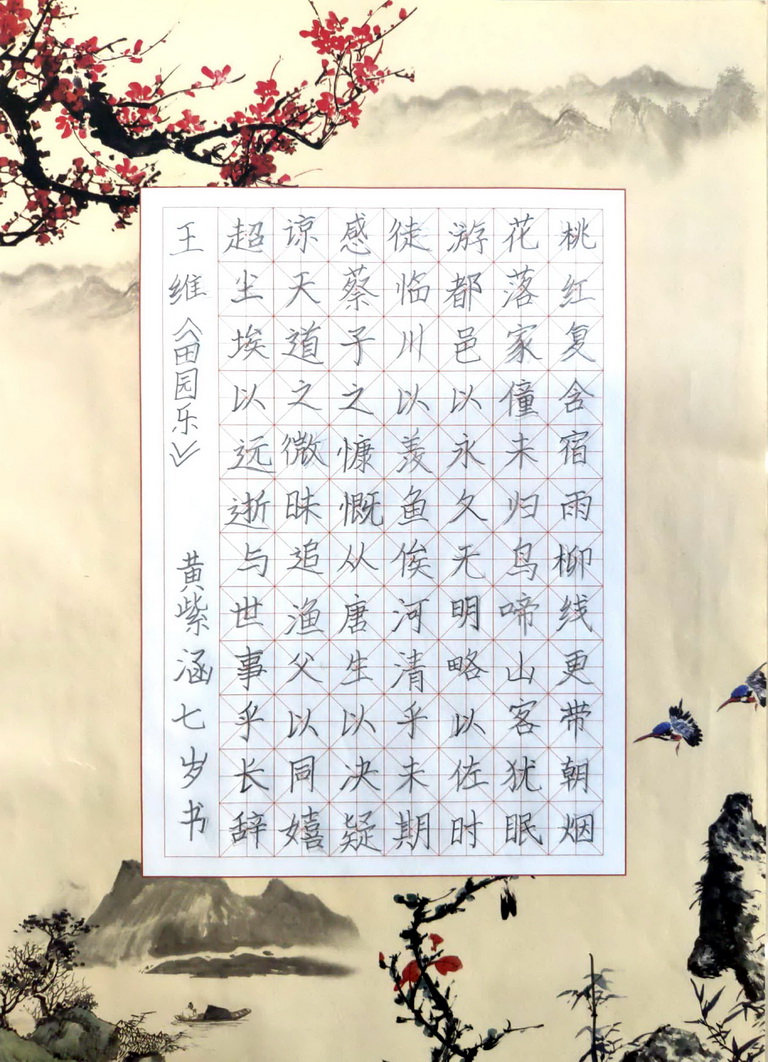 桃红复含宿雨柳线更带朝烟
花落家僮未归鸟啼山客犹眠
游都邑以永久无明略以佐时
徒临川以羡鱼俟河清乎未期
感蔡子之慷慨从唐生以决疑
谅天道之微昧追渔父以同嬉
超尘埃以远逝与世事乎长辞
王维《田园乐》 黄紫涵七岁书